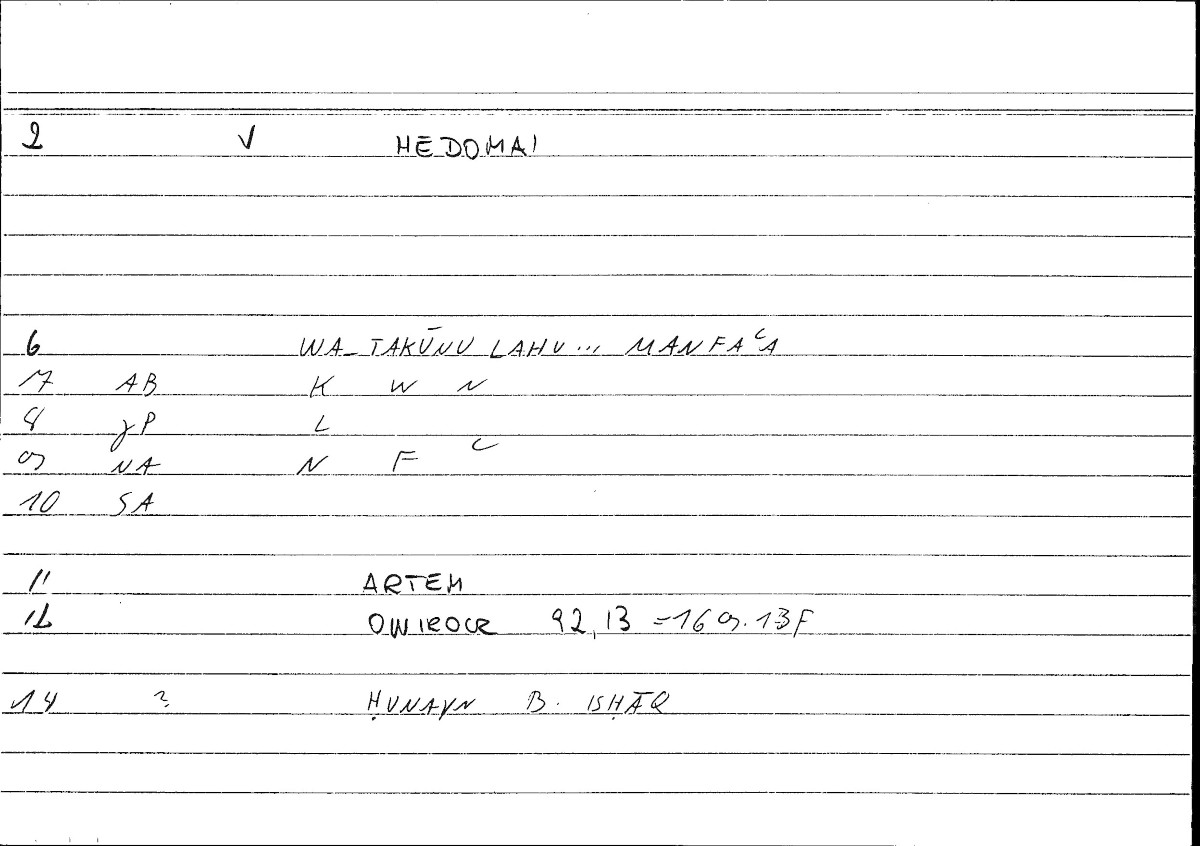 2 V HĒDOMAI
6 WA-TAKŪNU LAHU... MANFAʿA
7 AB K W N
8 γP L
9 NA N F ʿ
10 SA
11 ARTEM
12 ONIROCR 92,13 = 169.13F
14 ? ḤUNAYN B. ISḤĀQ